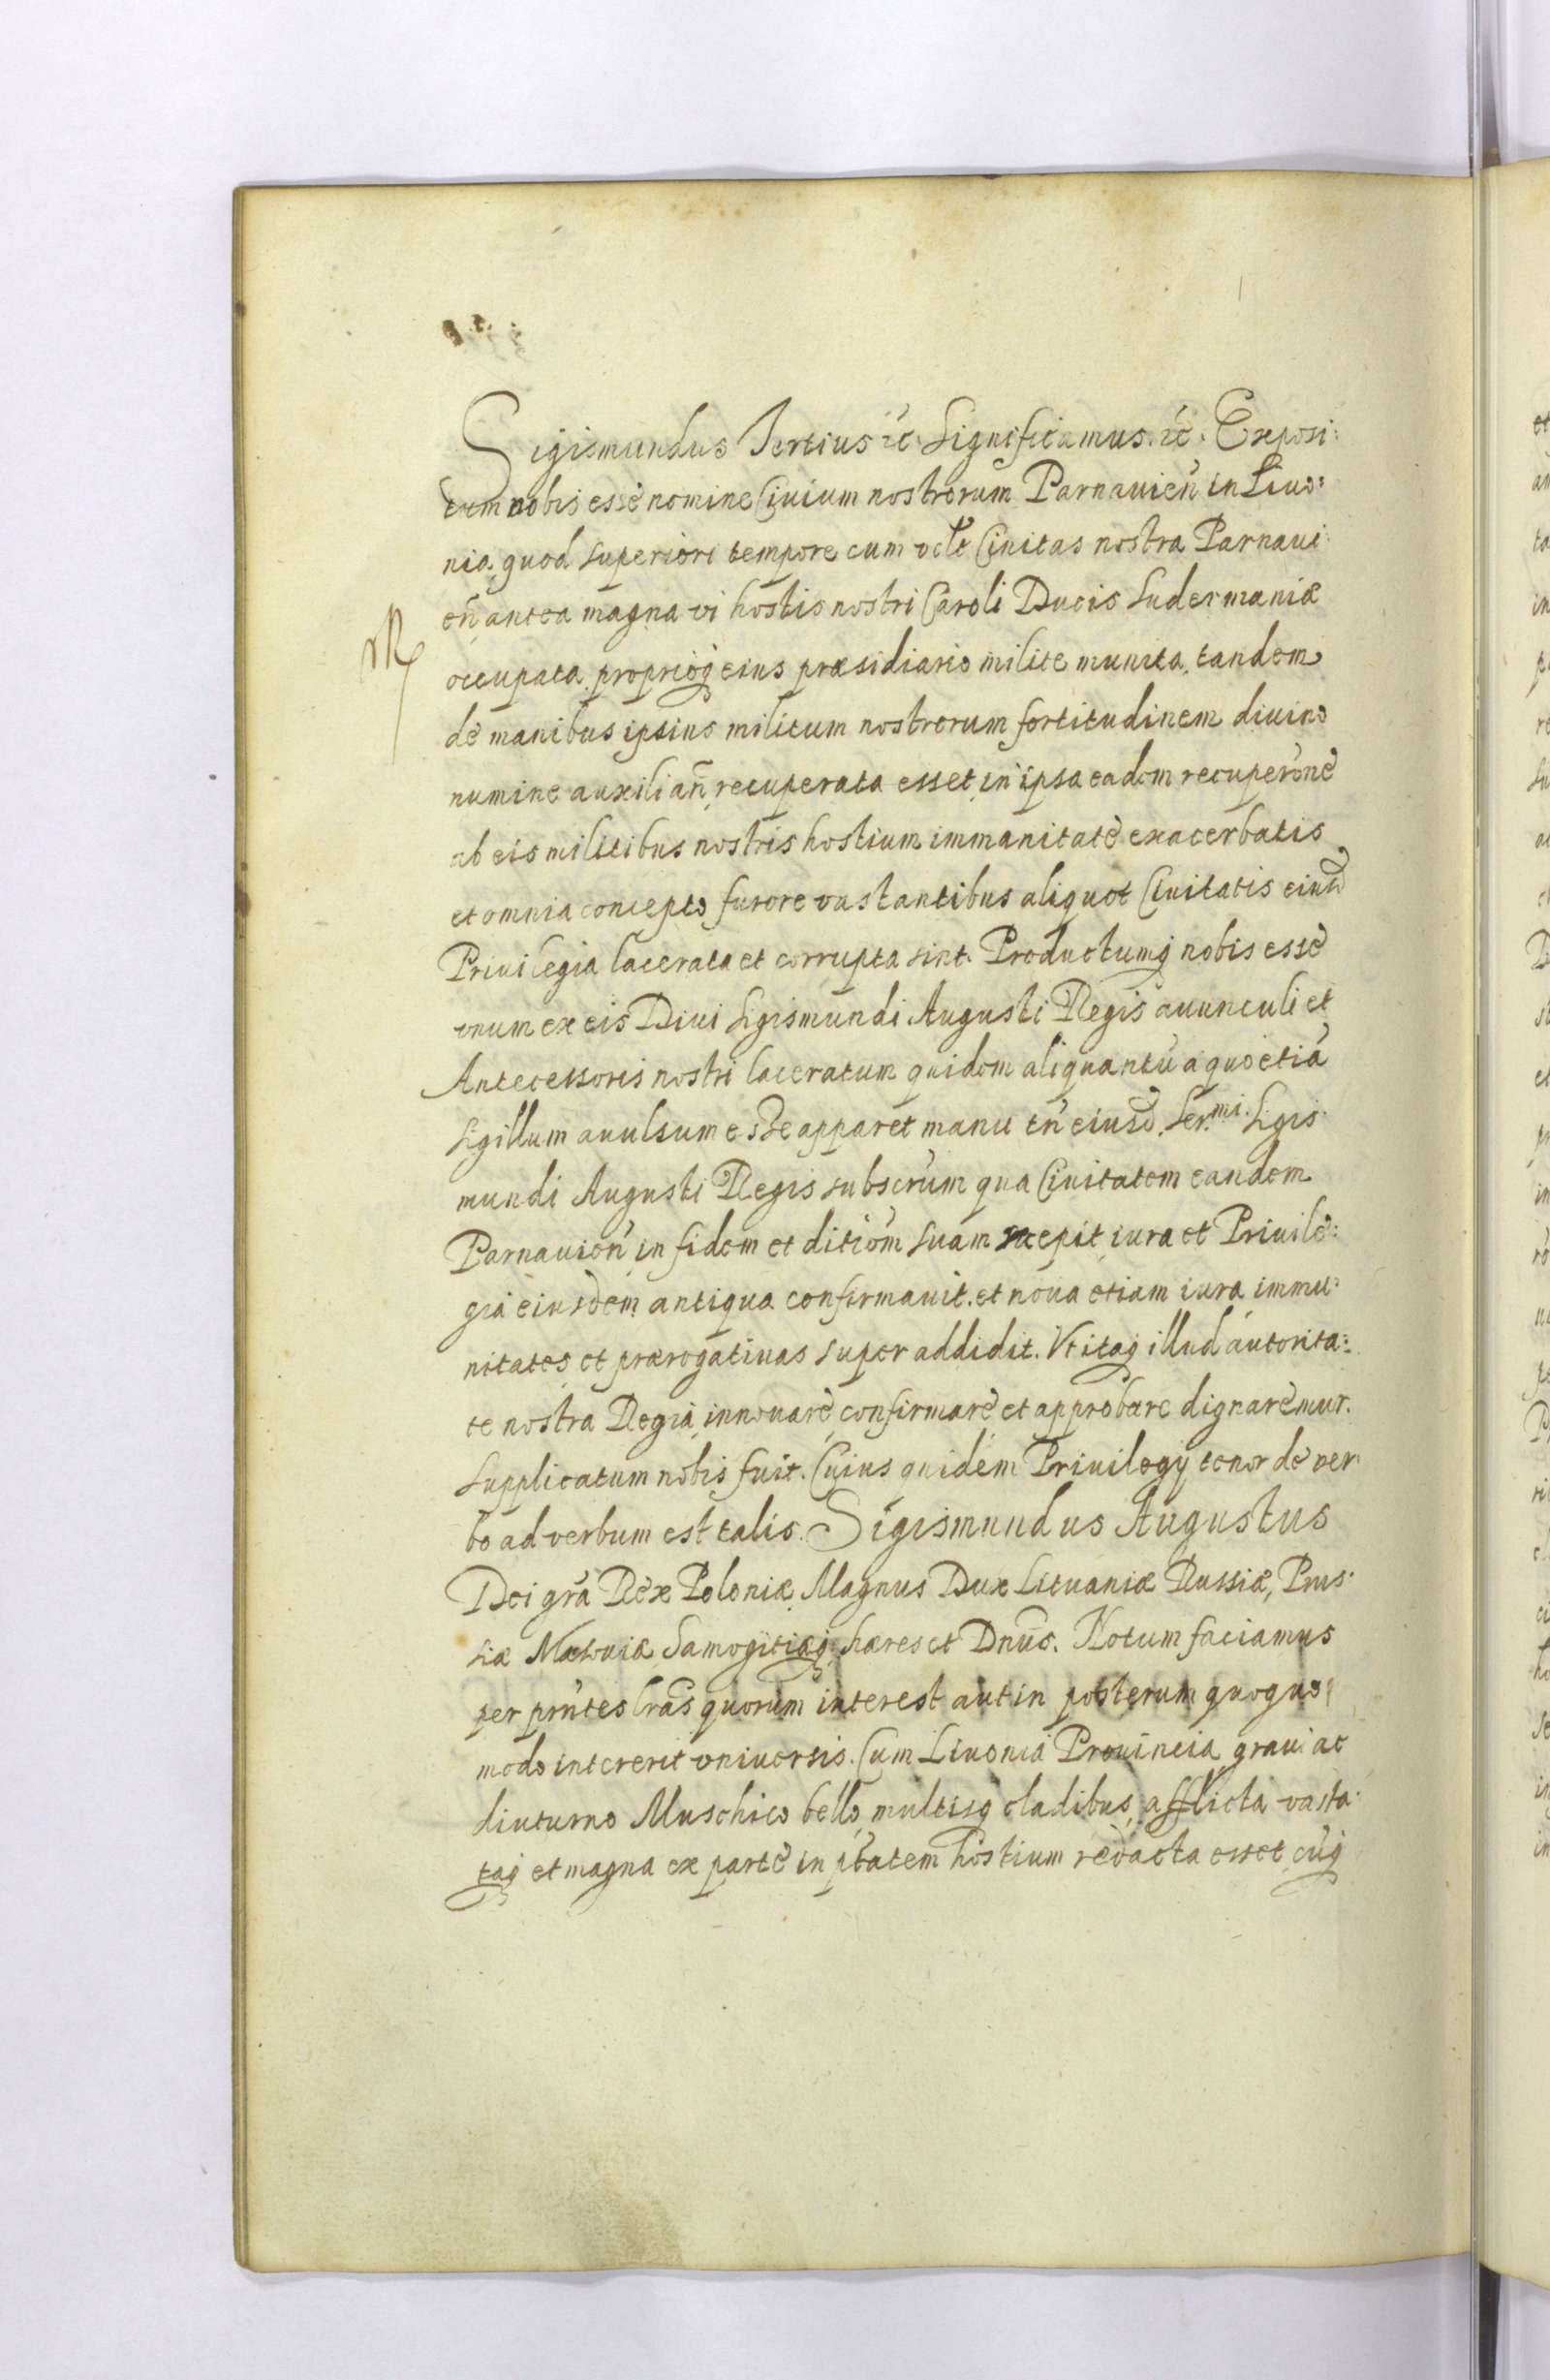 Sigismundus Tertius ?c. Significamus. ?c. Exposi:
tum nobis esse nomine Ciuium nostrorum Parnauień in Liuo:
nia, quod superiori tempore cum Ciuitas nostra Parnaui
eń antea magna vi hostis nostri Caroli Ducis Sudermaniæ
occupata proprioq eius præsidiario milite munita, tandem
de manibus ipsius militum nostrorum fortitudinem diuino
numine auxiliań, recuperata esset, in ipsa eadem recuperońe
ab eis militibus nostris hostium immanitate exacerbatis
et omnia concepto furore vastantibus aliquot Ciuitatis eiusd
Priuilegia lacerata et corrupta sint. Productumq nobis esse
vnum ex eis Diui Sigismundi Augusti Regis auunculi et
Antecessoris nostri laceratum quidem aliquantŭ a quo etiā
Sigillum auulsum esse apparet manu tń eiusd. Ser.mi Sigis
mundi Augusti Regis subscrum qua Ciuitatem eandem
Parnauień in fidem et ditiom suam recepit, iura et Priuile:
gia eiusdem antiqua confirmauit, et noua etiam iura immu:
nitates et prærogatiuas super addidit. Vt itaq illud autorita:
te nostra Regia, innouare, confirmare et approbare dignaremur.
Supplicatum nobis fuit. Cuius quidem Priuilegy tenor de ver
bo ad verbum est talis. Sigismundus Augustus
Dei gra Rex Poloniæ Magnus Dux Lituaniæ Russiæ, Prus:
siæ Masouiæ Samogitiæq hæres et Dnus. Notum faciamus
per pntes lras quorum interest aut in posterum quoquo
modo intererit vniuersis. Cum Liuonia Prouincia graui ac
diuturno Muschico bello, multisq cladibus, afflicta vasta:
taq et magna ex parte in ptatem hostium redacta esset, cuq